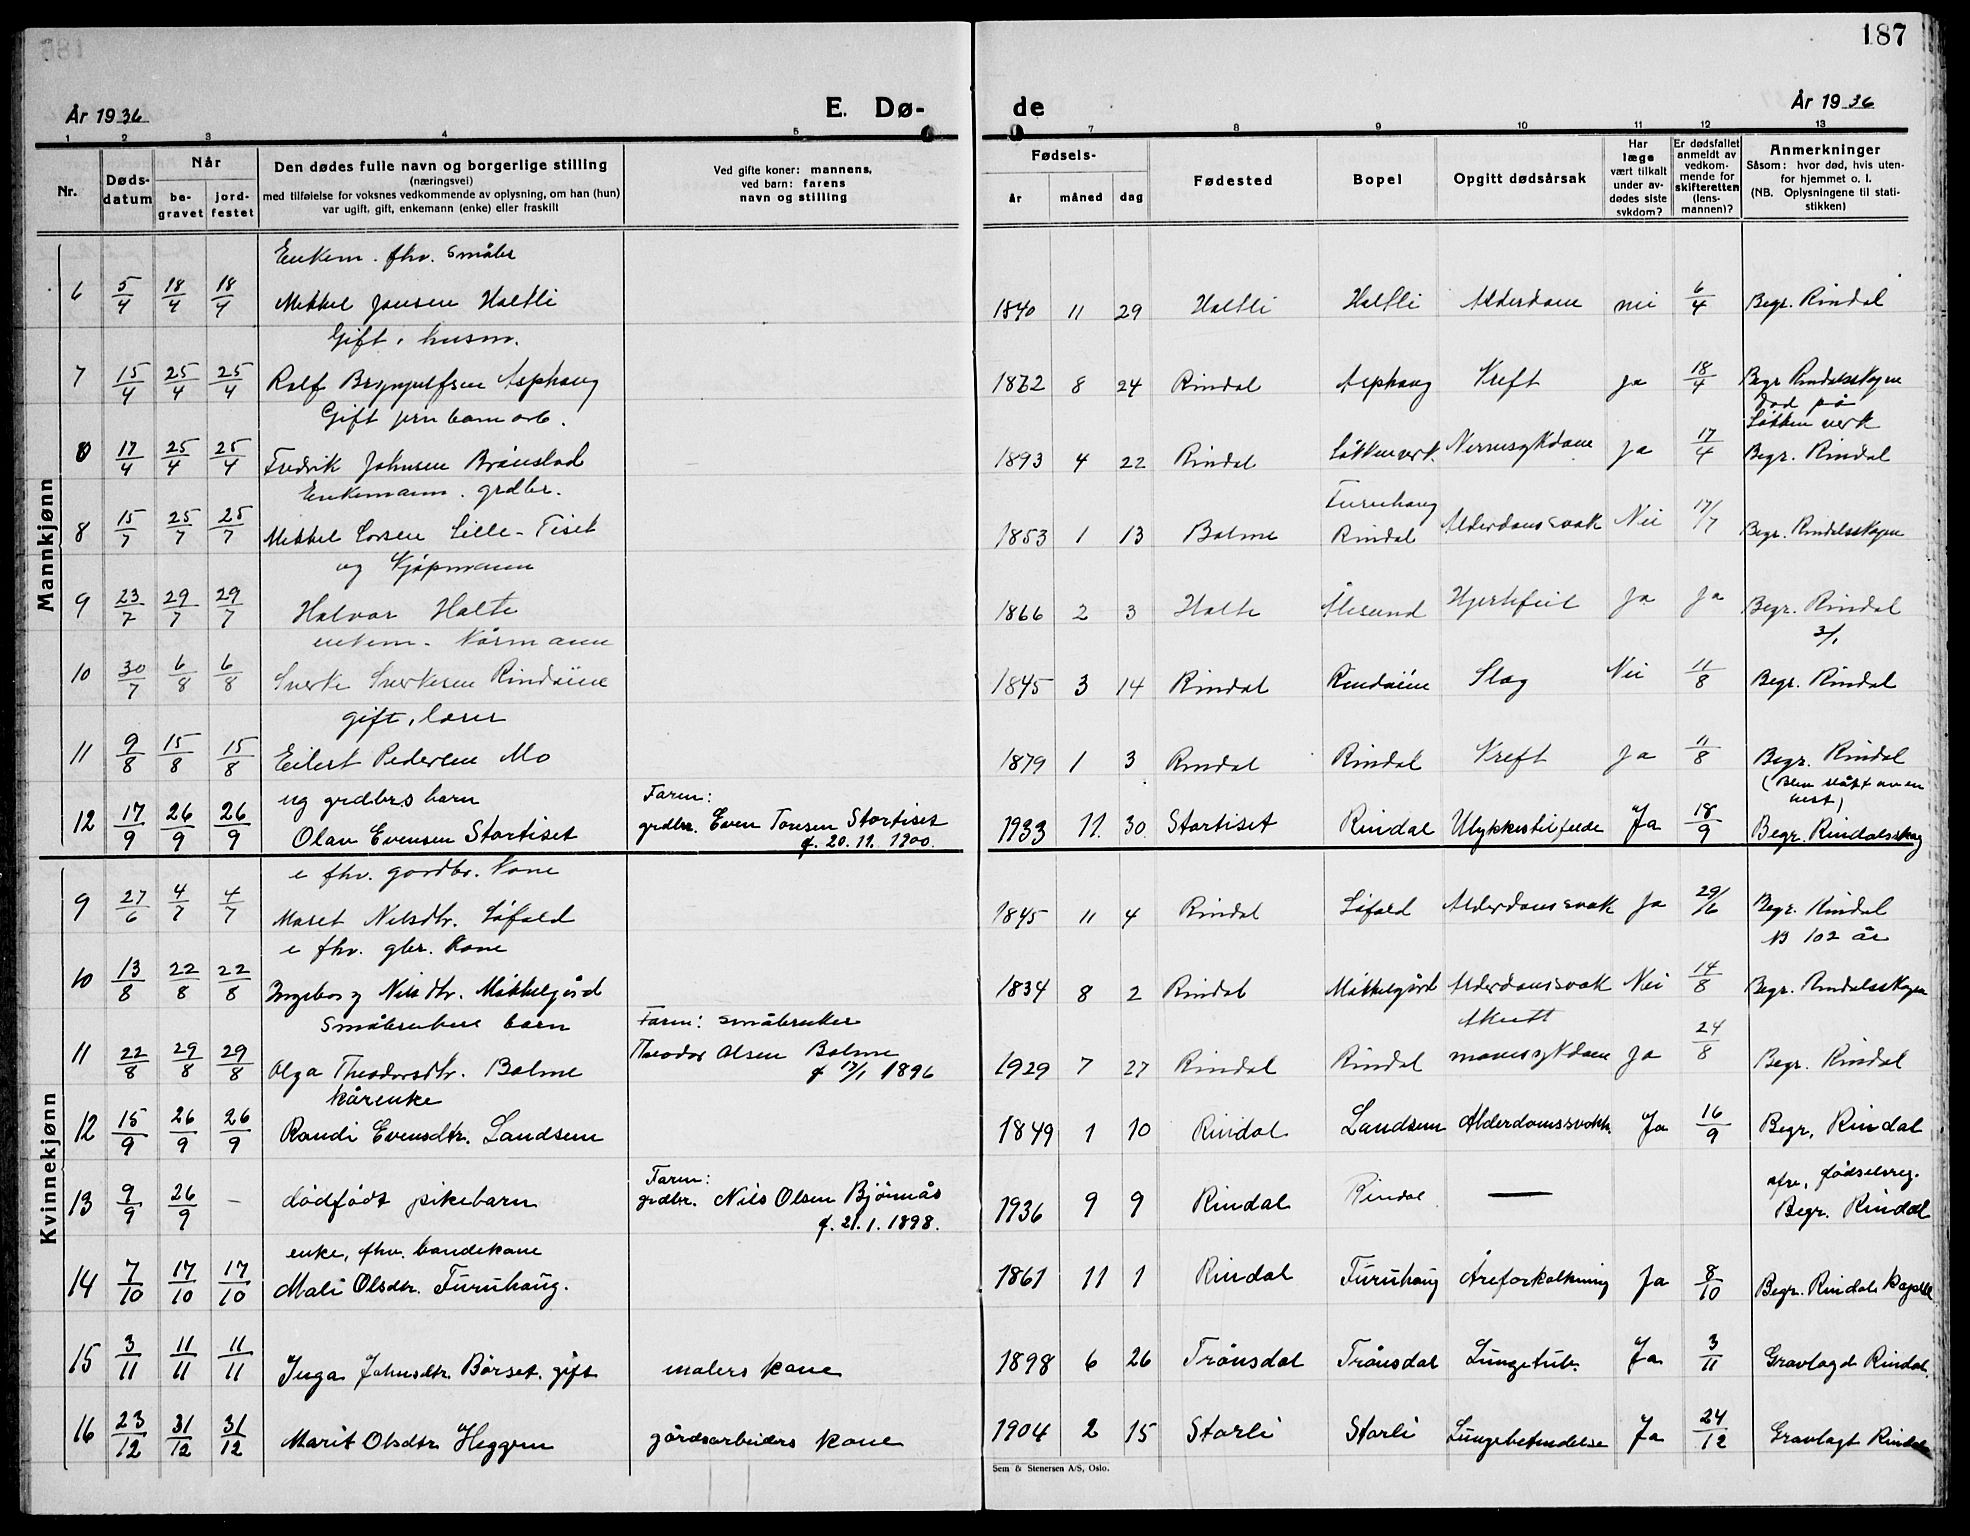 187
År 1936 E. Dø- de År 1936
1 2 3 4 5 7 8 9 10 11 12 13
Nr.
Døds-
datum
Når
be-
gravet
jord-
festet
Den dødes fulle navn og borgerlige stilling
(næringsvei)
med tilføielse for voksnes vedkommende av oplysning, om han (hun)
var ugift, gift, enkemann (enke) eller fraskilt
Ved gifte koner: mannens,
ved barn: farens
navn og stilling
Fødsels-
år måned dag
Fødested
Bopel
Opgitt dødsårsak
Har
læge
vært tilkalt
under av-
dødes siste
sykdom?
Er dødsfallet
anmeldt av
vedkom-
mende for
skifteretten
(lens-
mannen)?
Anmerkninger
Såsom: hvor død, hvis uten-
for hjemmet o. l.
(NB. Oplysningene til stati-
stikken)
Mannkjønn
Enkem. fhv. småbr
6 5/4 18/4 18/4 Mikkel Jonsen Haltli 1840 11 29 Haltli Haltli Alderdom nei 6/4 Begr. Rindal
Gift, husm.
7 15/4 25/4 25/4 Rolf Brynjulfsen Asphaug 1872 8 24 Rindal Asphaug Kreft ja 18/4 Begr Rindalsskogen
Gift jernbanearb. død på
Løkken verk
8 17/4 25/4 25/4 Fredrik Johnsen Brønstad 1893 4 22 Rindal Løkkenverk. Nervesykdom ja 17/4 Begr. Rindal
Enkemann. grdbr. Furuhaug
8 15/7 25/7 25/7 Mikkel Larsen Lille-Tiset 1853 1 13 Bolme Rindal Alderdomssvak Nei 17/7 Begr. Rindalsskogen
ug Kjøpmann
9 23/7 29/7 29/7 Halvor Halte 1866 2 3 Halte Ålesund Hjertefeil ja ja Begr. Rindal
enkem. Kårmann 3/1
10 30/7 6/8 6/8 Sverke Sverkesen Rindøien 1845 3 14 Rindal Rindøien Slag Nei 11/8 Begr. Rindal
gift, lærer
11 9/8 15/8 15/8 Eilert Pedersen Mo 1879 1 3 Rindal Rindal Kreft ja 11/8 Begr. Rindal
ug grdbrs barn Faren: (Blev slått av en
hest)
12 17/9 26/9 26/9 Olav Evensen Stortiset grdbr. Even Toresen Stortiset 1933 11. 30. Stortiset Rindal Ulykkestilfelde Ja 18/9 Begr. Rindalsskog
f. 20.11. 1900.
Kvinnekjønn
e fhv. gardbr. Kone
9 27/6 4/7 4/7 Maret Nilsdtr. Løfald 1845 11 4 Rindal Løfald Alderdomssvak ja 29/6 Begr. Rindal
e fhv. gbr. Kone NB 102 år
10 13/8 22/8 22/8 Ingeborg Nilsdtr. Mikkelgård 1834 8 2 Rindal Mikkelgård Alderdomssvak Nei 14/8 Begr. Rindalsskogen
Småbrukers barn Faren: småbruker Akutt
11 22/8 29/8 29/8 Olga Theodorsdtr. Bolme Theodor Olsen Bolme 1929 7 27 Rindal Rindal mavesykdom ja 24/8 Begr. Rindal
f 17/1 1896
kårenke
12 15/9 26/9 26/9 Randi Evensdtr. Landsem 1849 1 10 Rindal Landsem Alderdomssvakh. Ja 16/9 Begr, Rindal
Faren: fødselsreg.
13 9/9 26/9 – dødfødt pikebarn grdbr. Nils Olsen Bjørnås 1936 9 9 Rindal Rindal — Begr. Rindal
f. 21.1. 1898.
enke, fhv. bondekone
14 7/10 17/10 17/10 Mali Olsdtr. Furuhaug. 1861 11 1 Rindal Furuhaug Åreforkalkning Ja 8/10 Begr. Rindals kapell
15 3/11 11/11 11/11 Inga Johnsdtr. Børset. gift malers kone 1898 6 26 Trønsdal Trønsdal Lungetub. Ja 3/11 Gravlagd Rindal.
16 23/12 31/12 31/12 Marit Olsdtr. Heggem gårdsarbeiders kone 1904 2 15 Storli Storli Lungebetendelse Ja 24/12 Gravlagt Rindal
Sem & Stenersen A/S, Oslo.